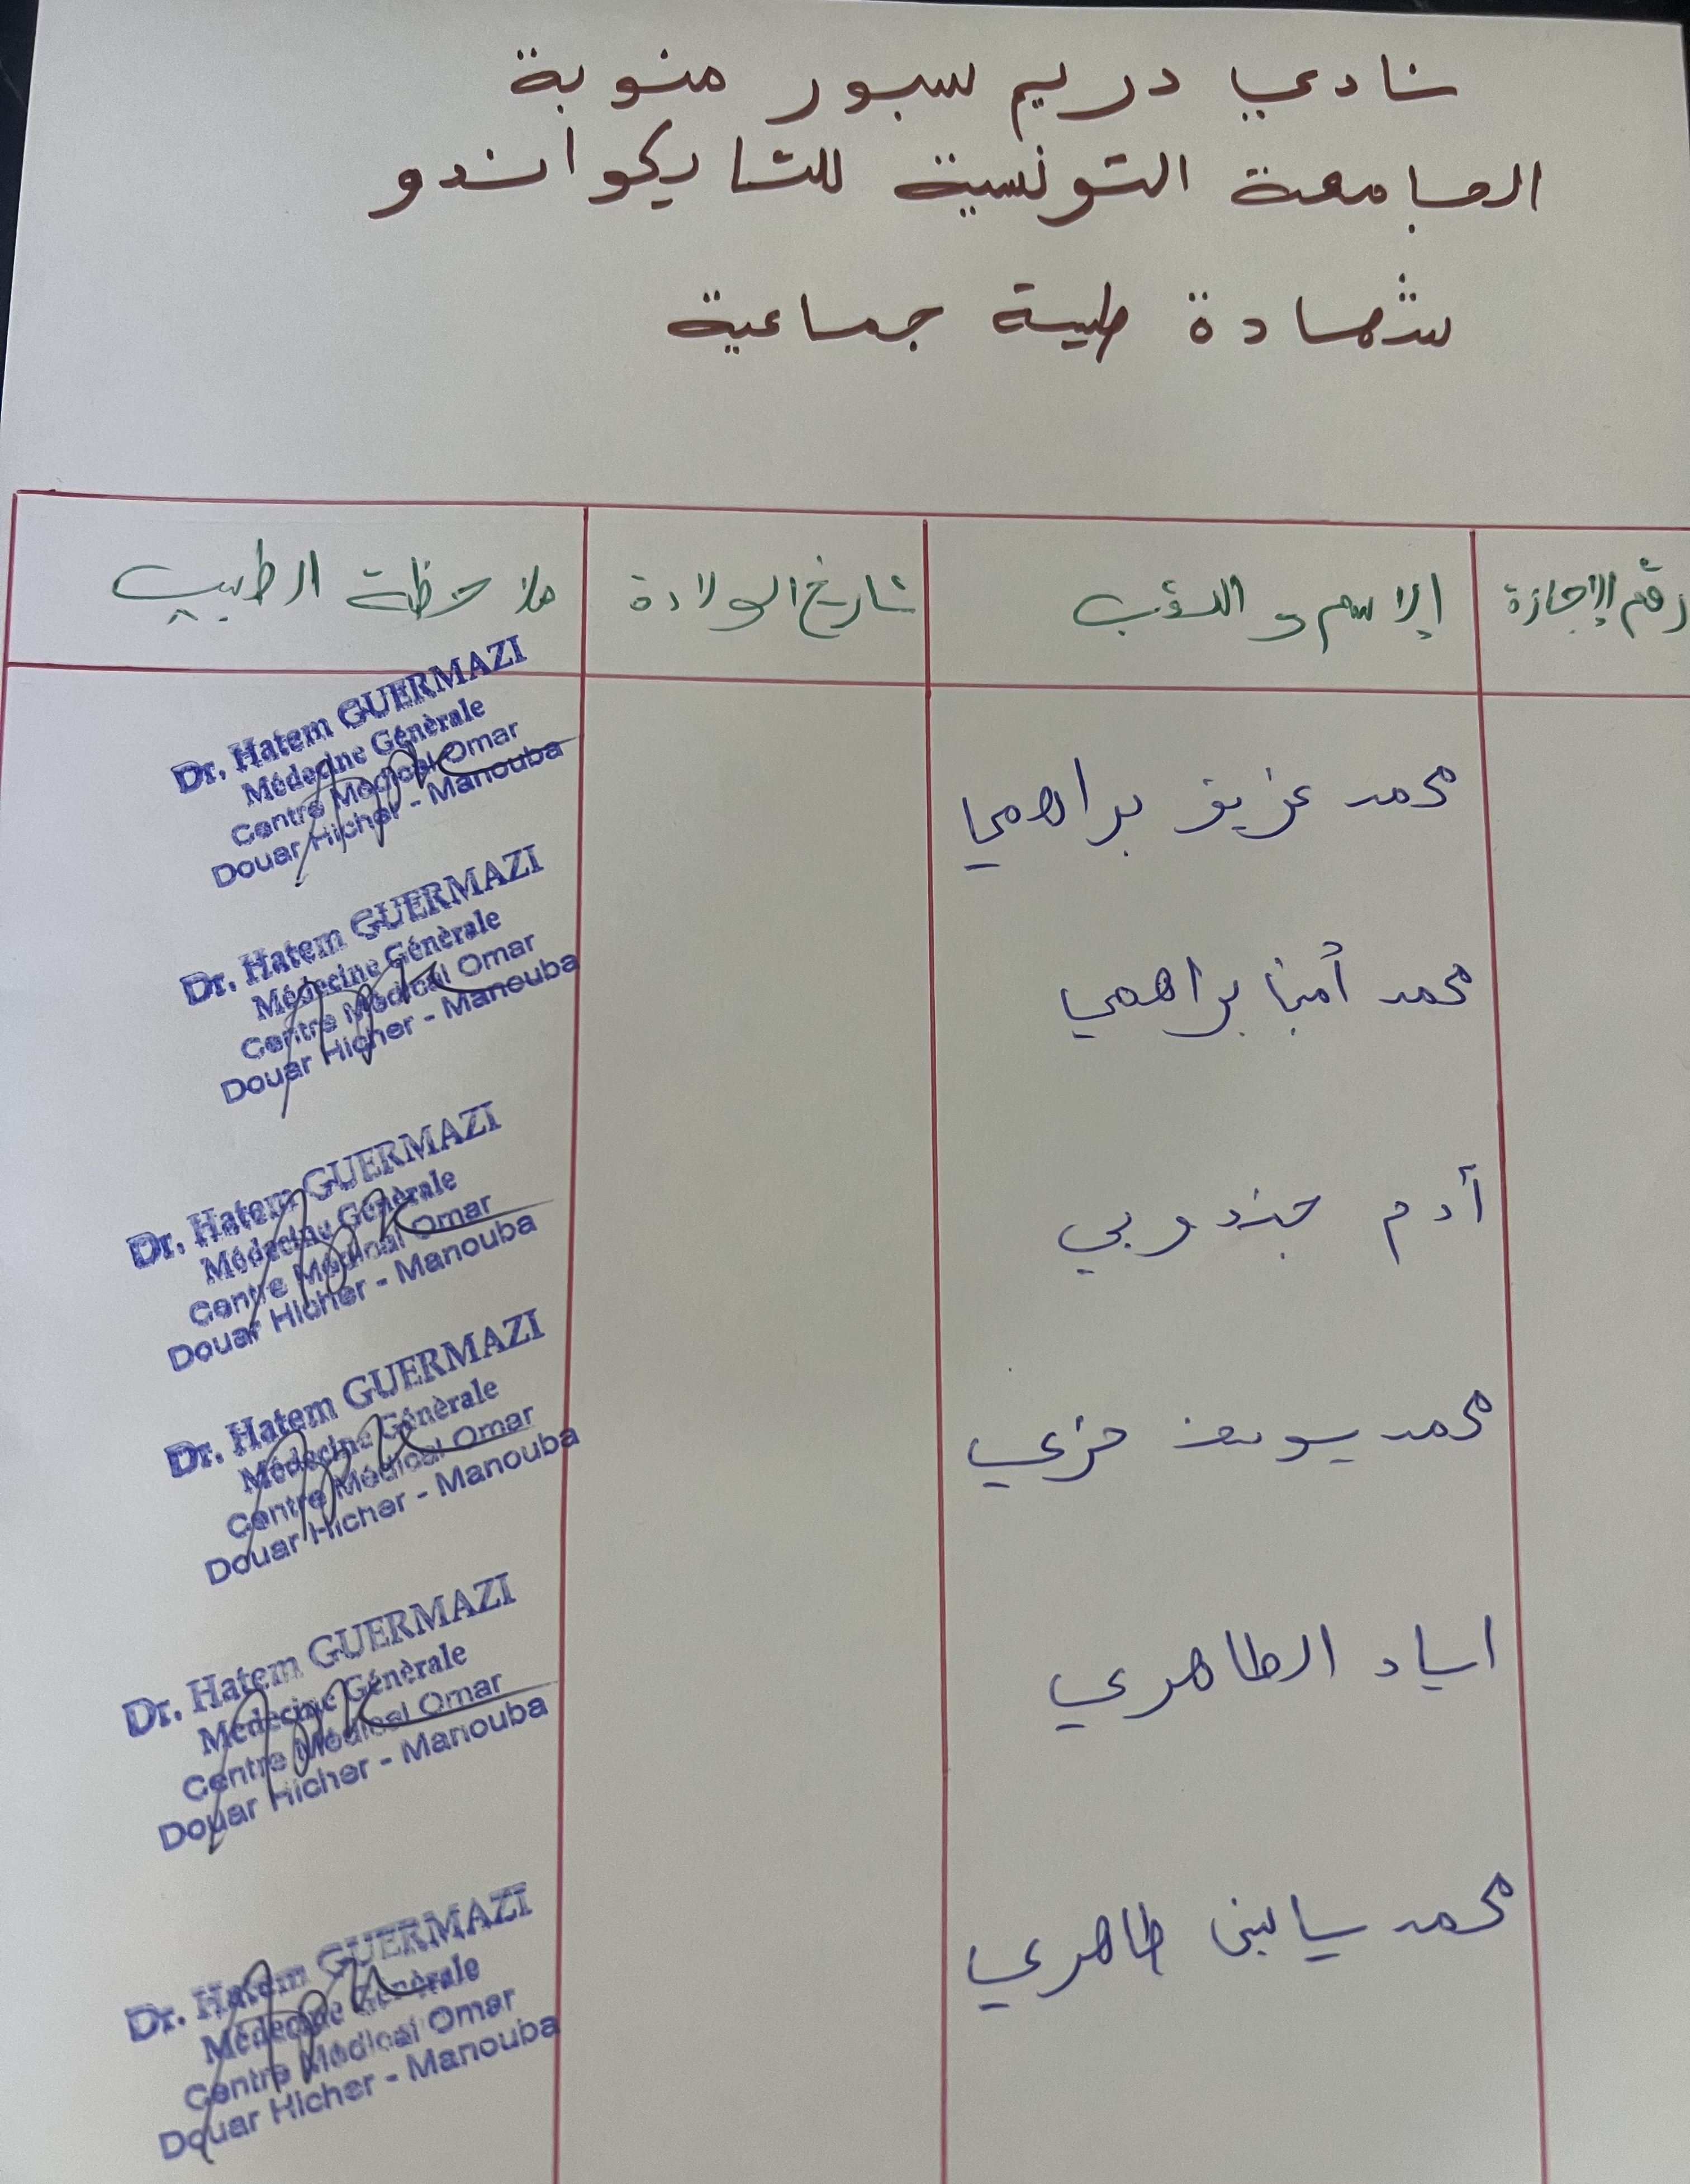 نادي دريم سبور منوبة
الجامعة التونسية للتايكواندو
شهادة طبية جماعية
رقم الإجازة الإسم و اللقب تاريخ الولادة ملاحظة الطبيب
محمد عزيز براهمي
Dr. Hatem GUERMAZI
Médecine Générale
Centre Médical Omar
Douar Hicher - Manouba
محمد أمين براهمي
Dr. Hatem GUERMAZI
Médecine Générale
Centre Médical Omar
Douar Hicher - Manouba
أدم جندوبي
Dr. Hatem GUERMAZI
Médecine Générale
Centre Médical Omar
Douar Hicher - Manouba
محمد يوسف حزي
Dr. Hatem GUERMAZI
Médecine Générale
Centre Médical Omar
Douar Hicher - Manouba
اياد الطاهري
Dr. Hatem GUERMAZI
Médecine Générale
Centre Médical Omar
Douar Hicher - Manouba
محمد طاهري
Dr. Hatem GUERMAZI
Médecine Générale
Centre Médical Omar
Douar Hicher - Manouba